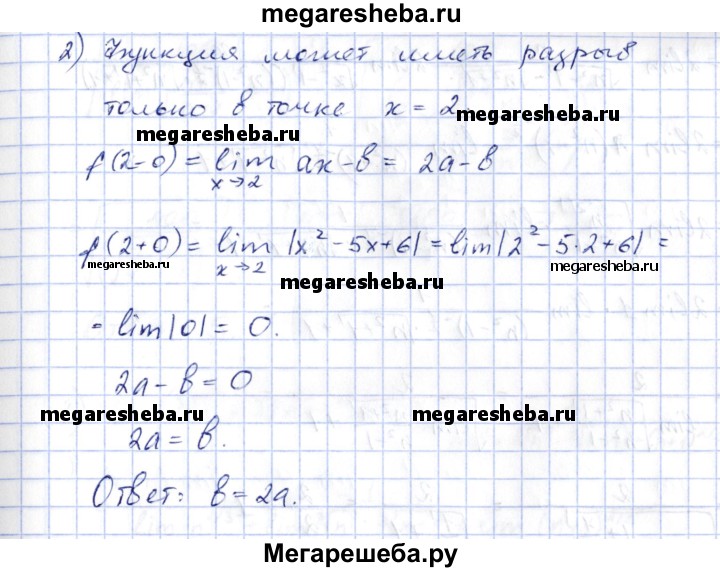 megaresheba.ru
2) Функция может иметь разрыв
только в точке x = 2.
megaresheba.ru
megaresheba.ru
f(2-0) = lim ax - в = 2a - в
x→2
f(2+0) = lim |x² - 5x + 6| = lim |2² - 5·2 + 6| =
x→2
megaresheba.ru
megaresheba.ru
megaresheba.ru
= lim |0| = 0.
2a - в = 0
megaresheba.ru
megaresheba.ru
2a = в.
Ответ: в = 2a.
megaresheba.ru
Мегарешеба.ру